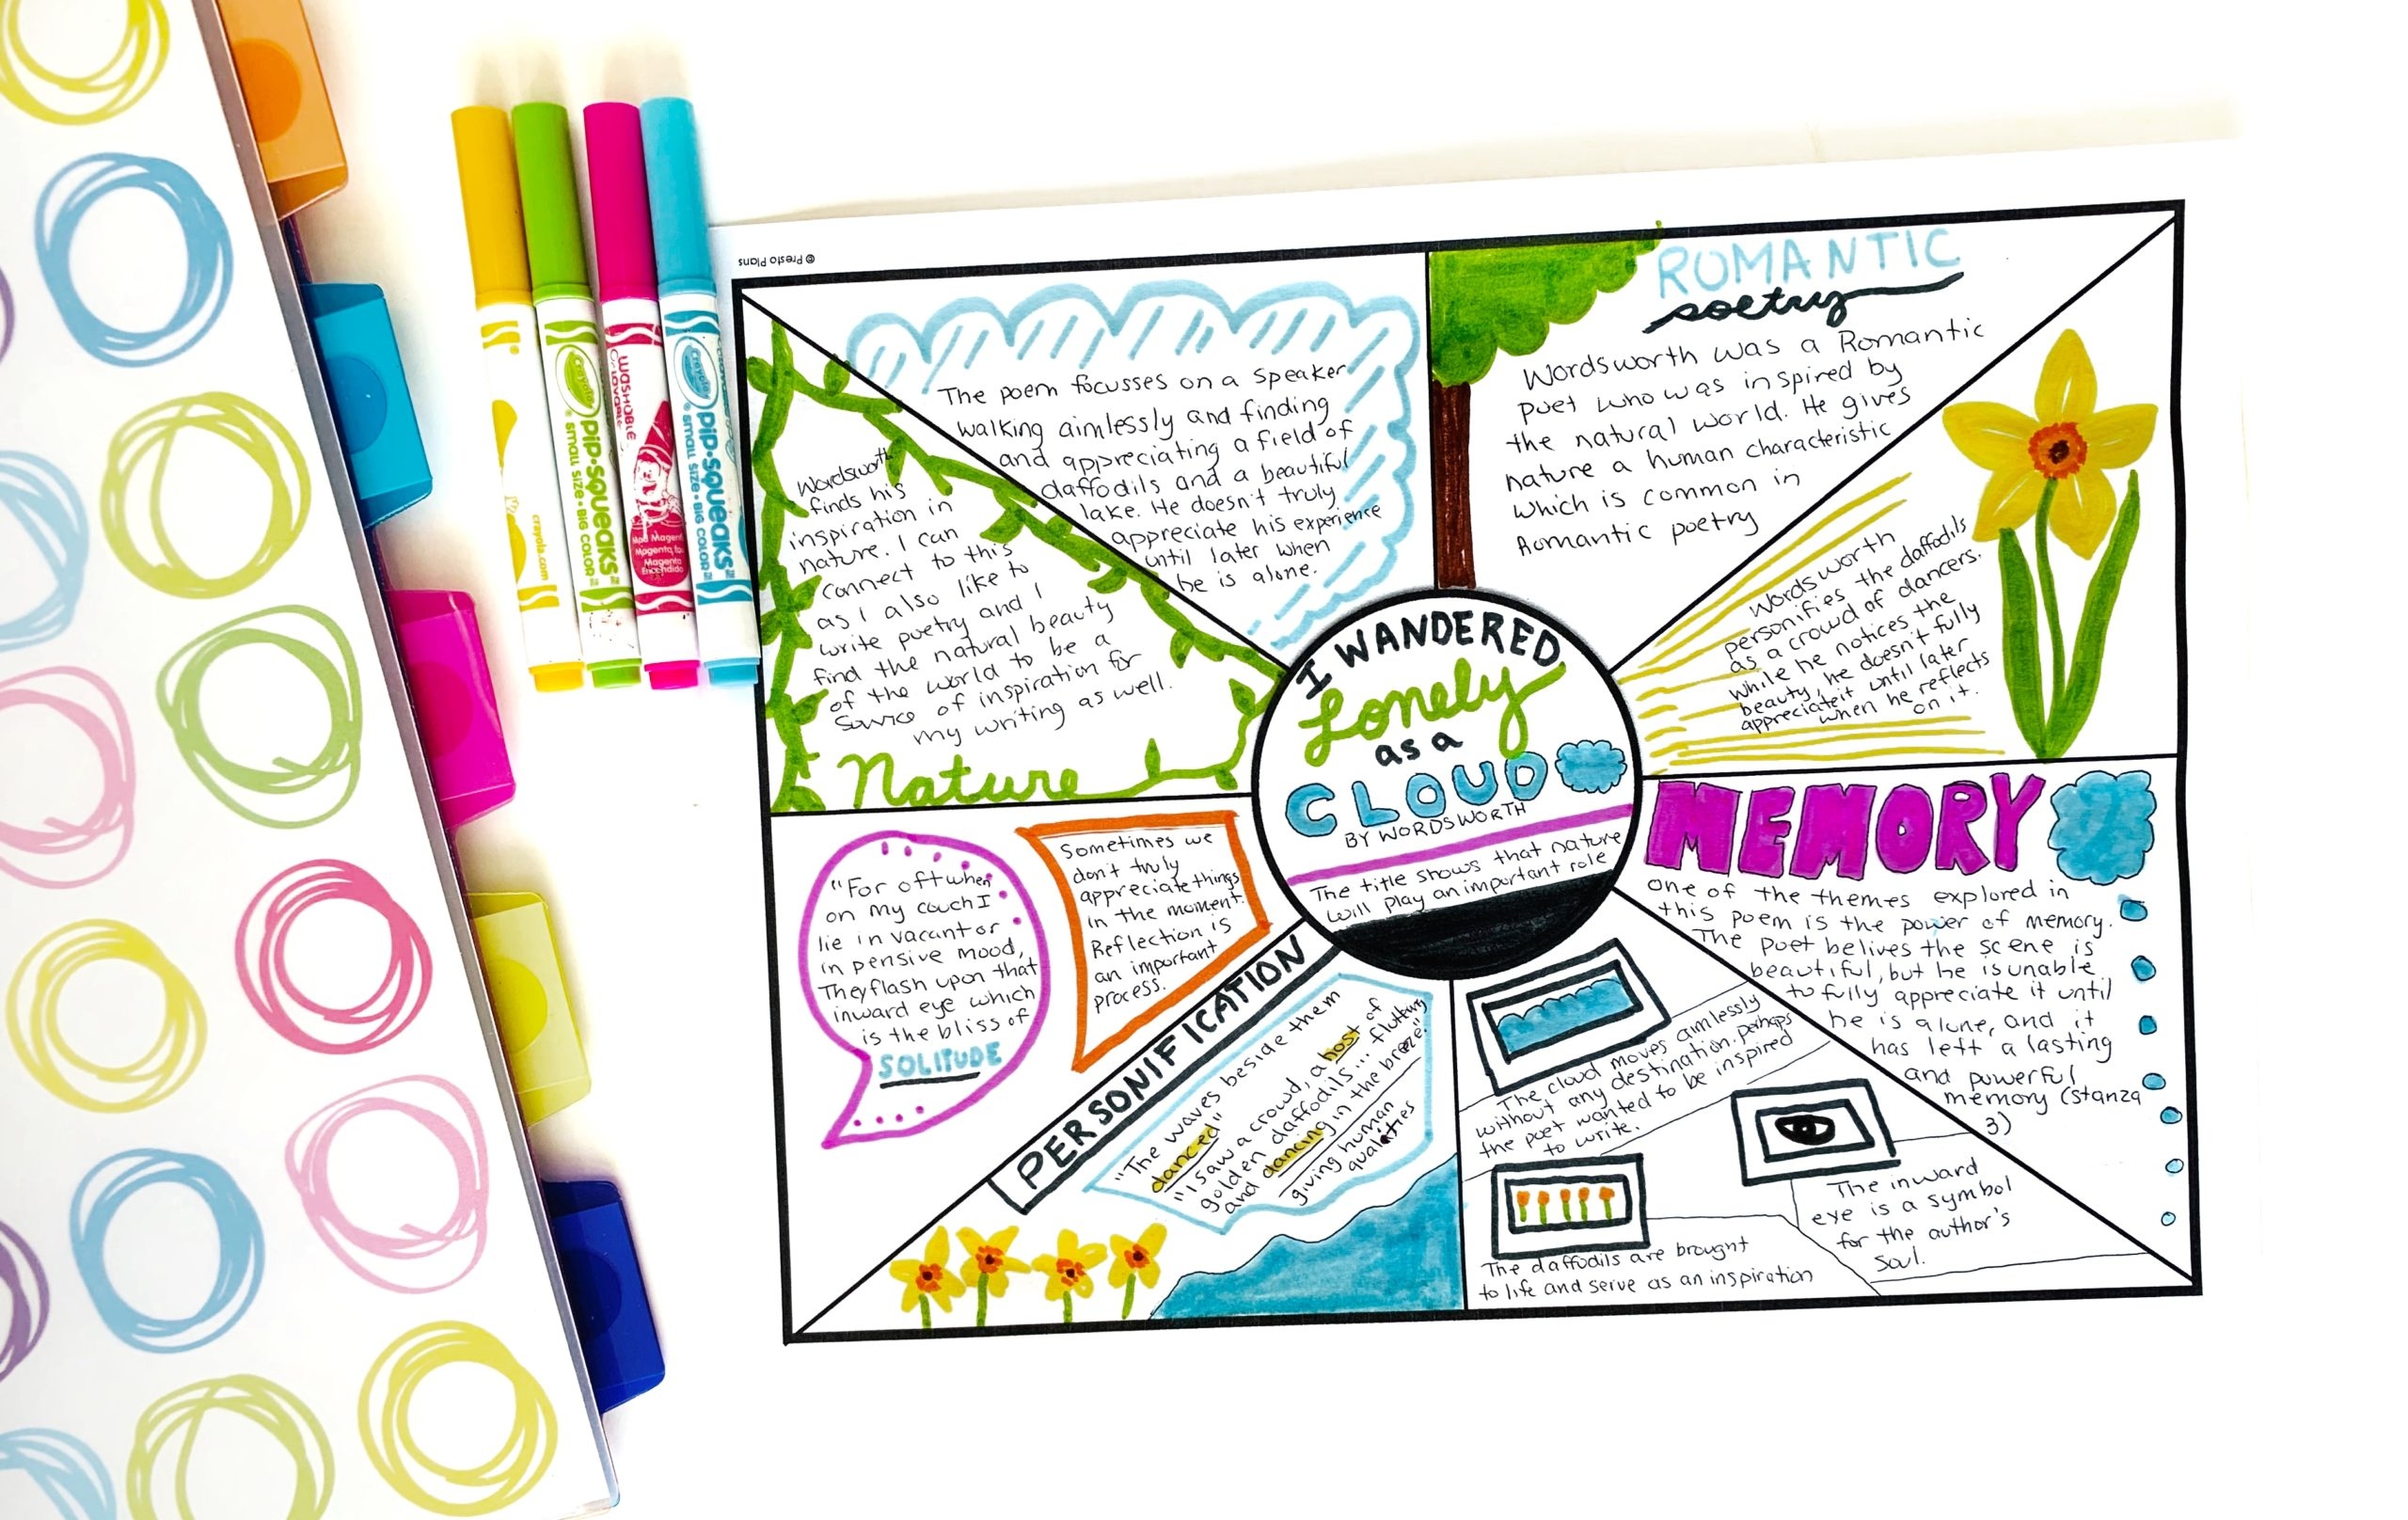 © Presto Plans
crayola.com
Crayola
pip·squeaks
small size·BIG COLOR
WASHABLE
Mad Magenta
Magenta
Crayola
pip·squeaks
small size·BIG COLOR
The poem focusses on a speaker
walking aimlessly and finding
and appreciating a field of
daffodils and a beautiful
lake. He doesn't truly
appreciate his experience
until later when
he is alone.
ROMANTIC
poetry
Wordsworth was a Romantic
poet who was inspired by
the natural world. He gives
nature a human characteristic
which is common in
Romantic poetry
Wordsworth
finds his
inspiration in
nature. I can
connect to this
as I also like to
write poetry and I
find the natural beauty
of the world to be a
source of inspiration for
my writing as well.
Nature
Wordsworth
personifies the daffodils
as a crowd of dancers.
While he notices the
beauty, he doesn't fully
appreciate it until later
when he reflects
on it.
I WANDERED
Lonely
as a
CLOUD
BY WORDSWORTH
The title shows that nature
will play an important role
"For oft when
on my couch I
lie in vacant or
in pensive mood,
They flash upon that
inward eye which
is the bliss of
SOLITUDE
Sometimes we
don't truly
appreciate things
in the moment.
Reflection is
an important
process.
MEMORY
One of the themes explored in
this poem is the power of memory.
The poet belives the scene is
beautiful, but he is unable
to fully appreciate it until
he is alone, and it
has left a lasting
and powerful
memory (stanza
3)
PERSONIFICATION
"The waves beside them
danced"
"I saw a crowd, a host of
golden daffodils... fluttering
and dancing in the breeze"
giving human
qualities
The cloud moves aimlessly
without any destination. perhaps
the poet wanted to be inspired
to write.
The inward
eye is a symbol
for the author's
soul.
The daffodils are brought
to life and serve as an inspiration